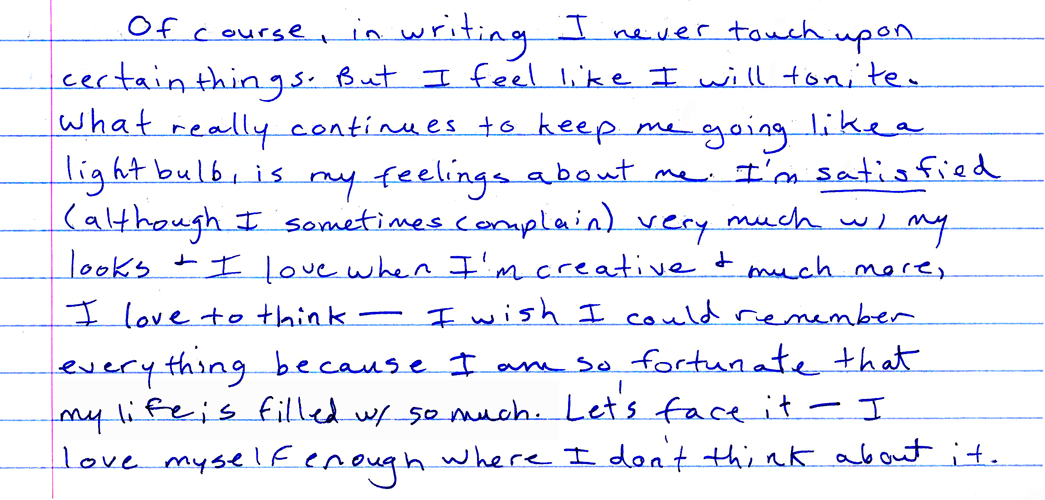 Of course, in writing I never touch upon
certain things. But I feel like I will tonite.
What really continues to keep me going like a
lightbulb, is my feelings about me. I'm satisfied
(although I sometimes complain) very much w/ my
looks + I love when I'm creative + much more,
I love to think — I wish I could remember
everything because I am so fortunate that
my life is filled w/ so much. Let's face it — I
love myself enough where I don't think about it.